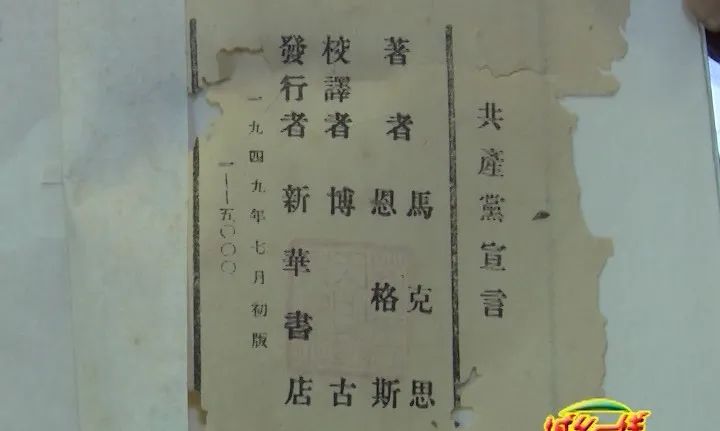 共產黨宣言
著者 馬克思
恩格斯
校譯者 博古
發行者 新華書店
一九四九年七月初版
一——五〇〇〇